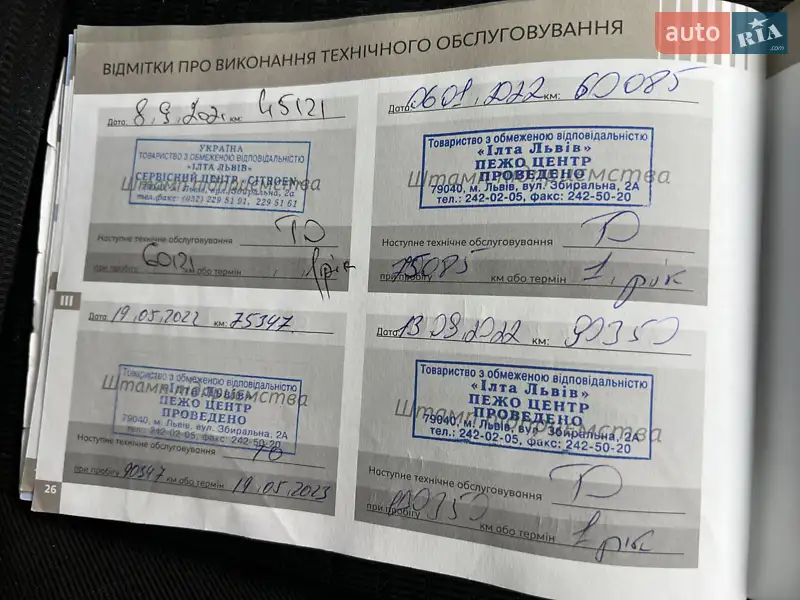 auto RIA .com
ВІДМІТКИ ПРО ВИКОНАННЯ ТЕХНІЧНОГО ОБСЛУГОВУВАННЯ
Дата 8.9.2021 км: 45121
УКРАЇНА
ТОВАРИСТВО З ОБМЕЖЕНОЮ ВІДПОВІДАЛЬНІСТЮ
«ІЛТА ЛЬВІВ»
СЕРВІСНИЙ ЦЕНТР «CITROEN»
Штамп підприємства
79040, м. Львів, вул. Збиральна, 2а
тел.факс: (032) 229 51 91, 229 51 61
Наступне технічне обслуговування ТО
при пробігу 60121 км або термін 1 рік
Дата 06.01.2022 км: 60085
Товариство з обмеженою відповідальністю
«Ілта Львів»
ПЕЖО ЦЕНТР
Штамп підприємства
ПРОВЕДЕНО
79040, м. Львів, вул. Збиральна, 2А
тел.: 242-02-05, факс: 242-50-20
Наступне технічне обслуговування ТО
при пробігу 75085 км або термін 1 рік
III
Дата 19.05.2022 км: 75347
Товариство з обмеженою відповідальністю
«Ілта Львів»
Штамп підприємства
ПЕЖО ЦЕНТР
ПРОВЕДЕНО
79040, м. Львів, вул. Збиральна, 2А
тел.: 242-02-05, факс: 242-50-20
Наступне технічне обслуговування ТО
при пробігу 90347 км або термін 19.05.2023
Дата 13.09.2022 км: 90350
Товариство з обмеженою відповідальністю
«Ілта Львів»
ПЕЖО ЦЕНТР
Штамп підприємства
ПРОВЕДЕНО
79040, м. Львів, вул. Збиральна, 2А
тел.: 242-02-05, факс: 242-50-20
Наступне технічне обслуговування ТО
при пробігу км або термін 1 рік
26